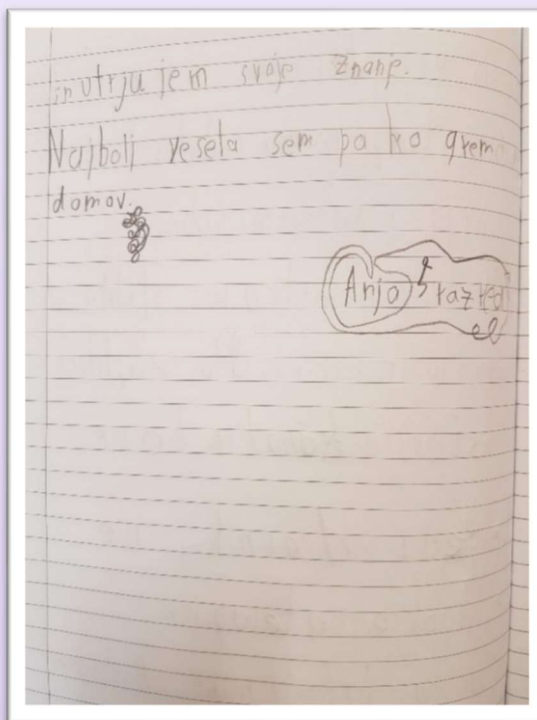 in utrjujem svoje znanje.
Najbolj vesela sem pa ko grem
domov.
Anja razred